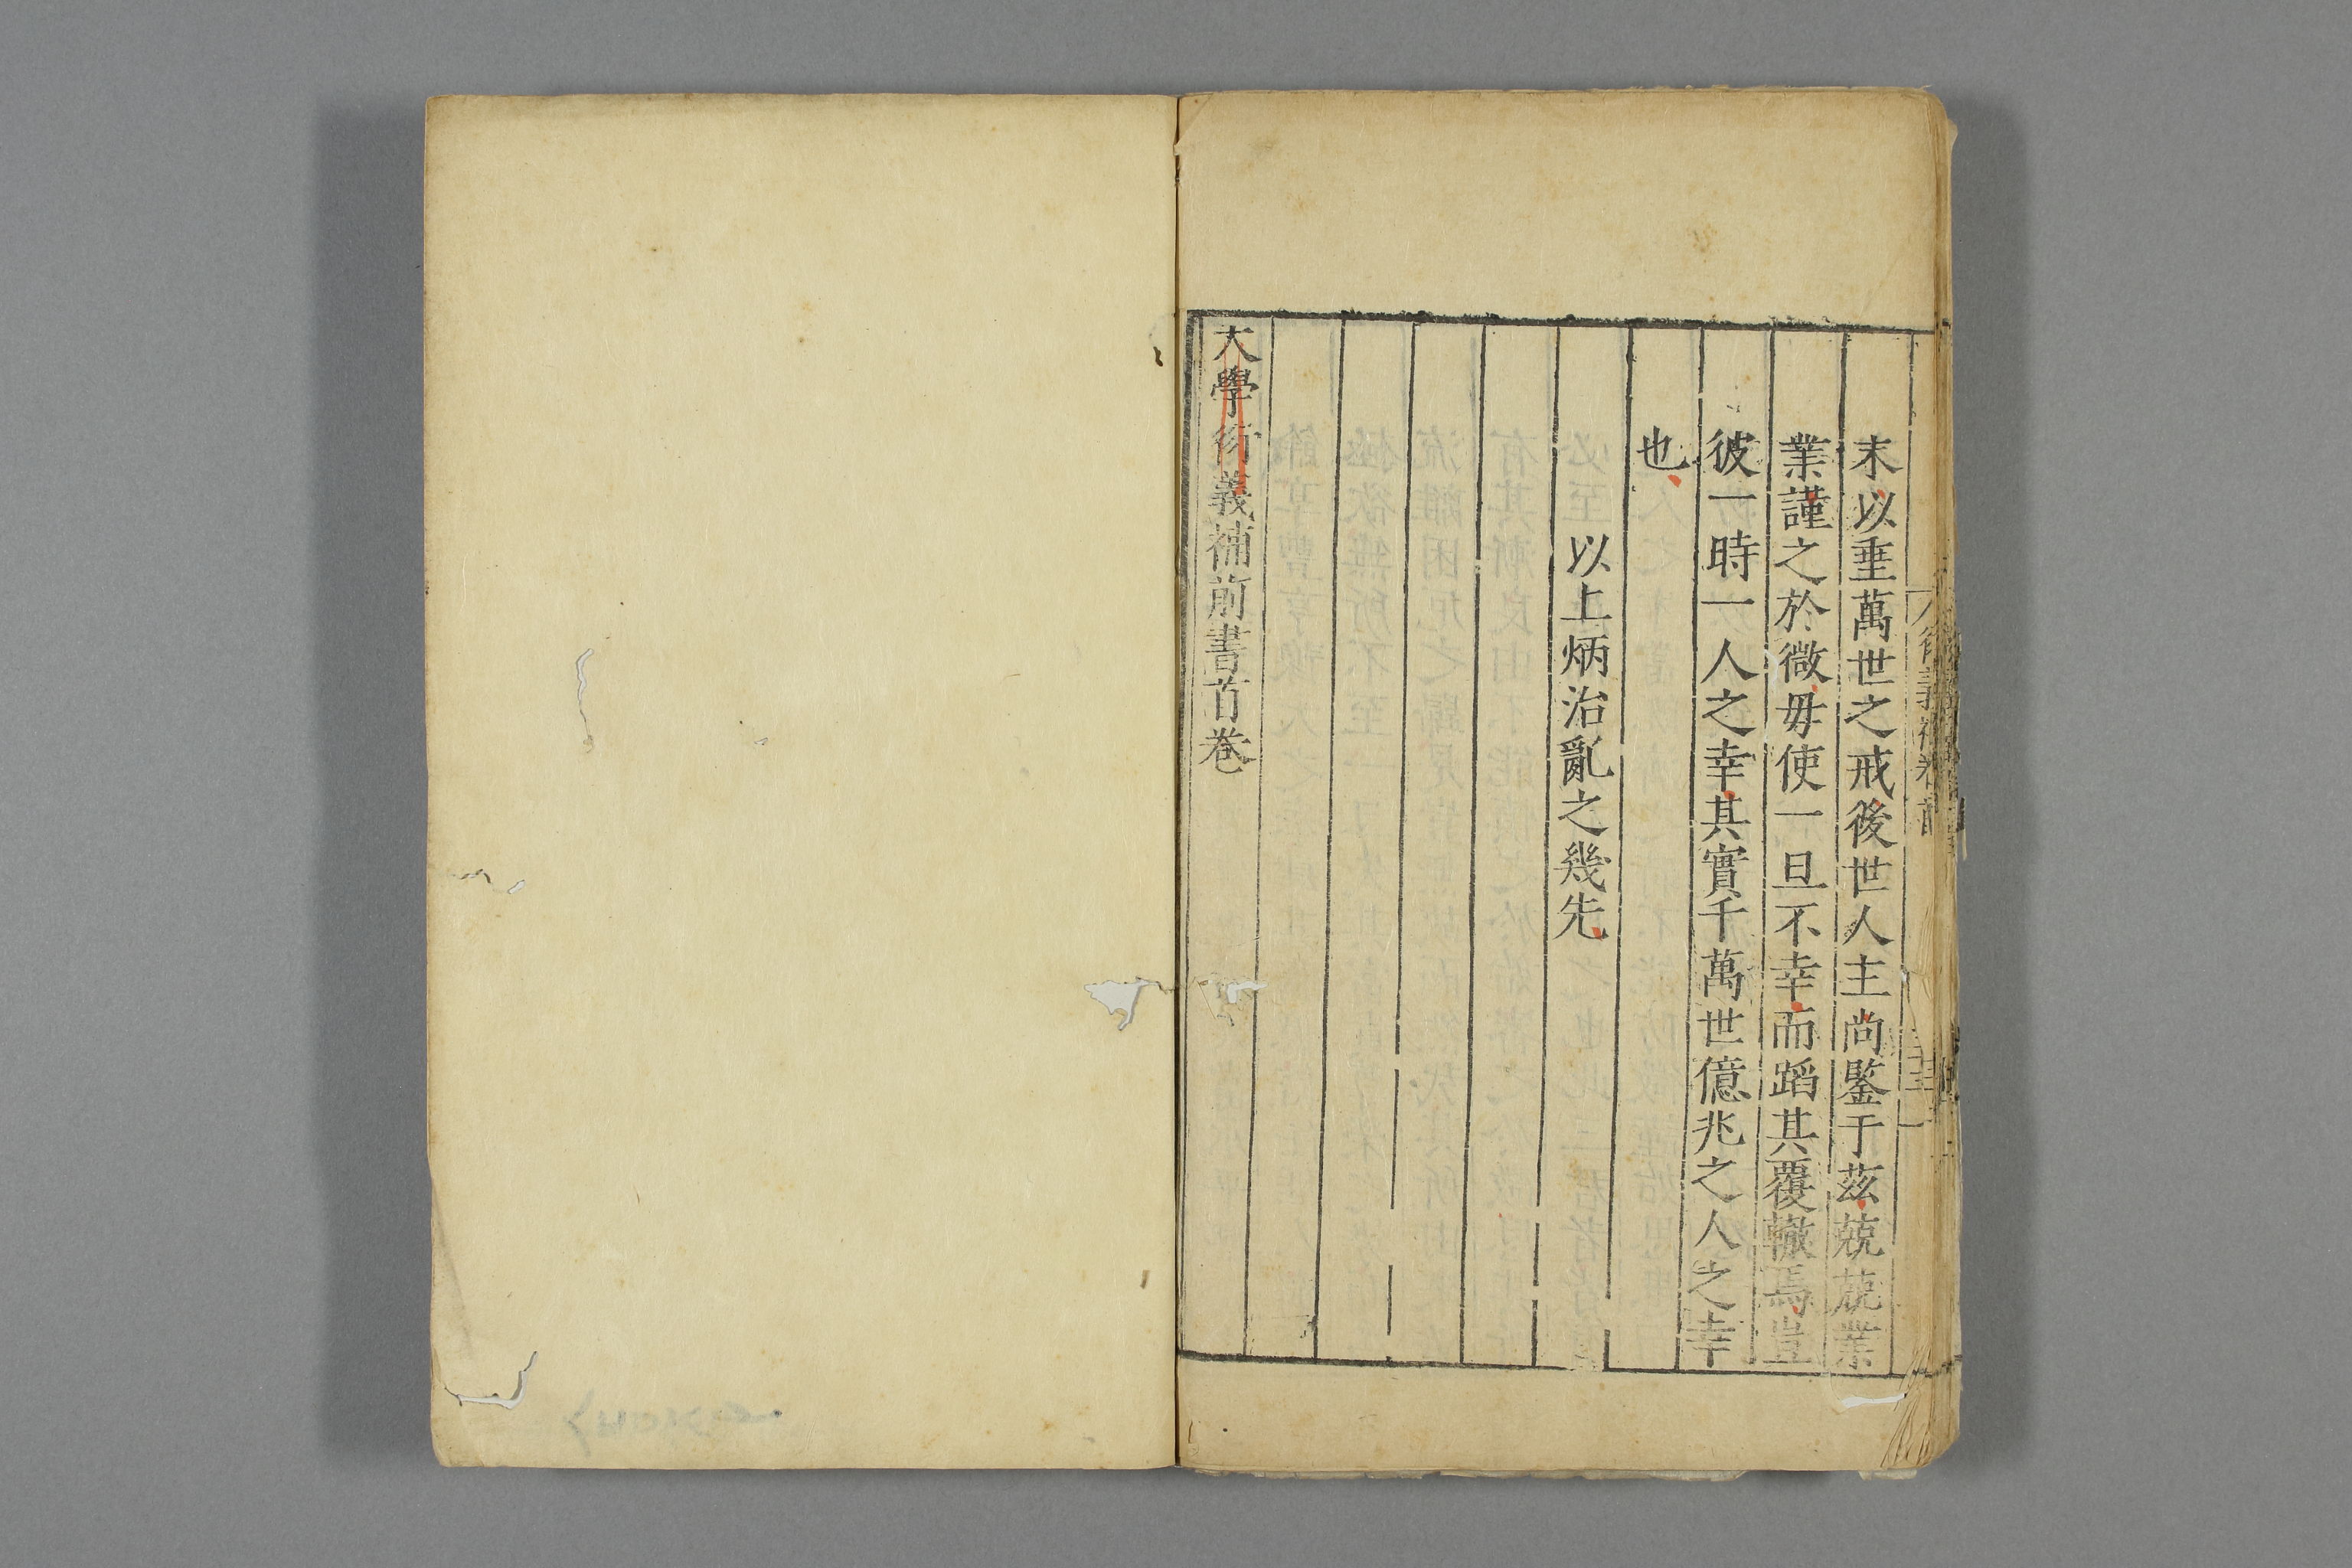 末以垂萬世之戒後世人主尚鑒于茲兢兢業
業謹之於微毋使一旦不幸而蹈其覆轍焉豈
彼一時一人之幸其實千萬世億兆之人之幸
也
以上炳治亂之幾先
大學衍義補前書首卷